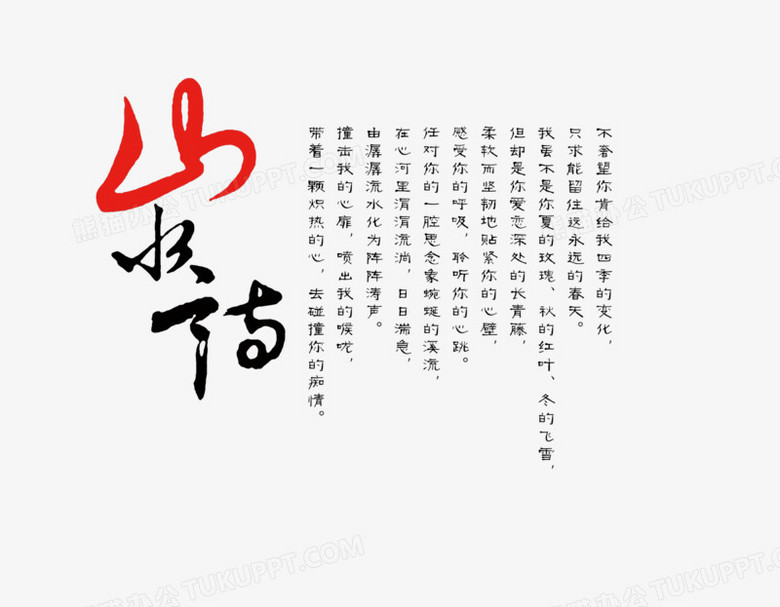 山水
不奢望你肯给我四季的变化，
只求能留住这永远的春天。
我虽不是你夏的玫瑰、秋的红叶、冬的飞雪，
但却是你爱恋深处的长青藤，
柔软而坚韧地贴紧你的心壁，
感受你的呼吸，聆听你的心跳。
任对你的一腔思念象蜿蜒的溪流，
在心河里涓涓流淌，日日湍急，
由潺潺流水化为阵阵涛声。
撞击我的心扉，喷出我的喉咙，
带着一颗炽热的心，去碰撞你的痴情。
熊猫办公 TUKUPPT.COM
熊猫办公 TUKUPPT.COM
熊猫办公 TUKUPPT.COM